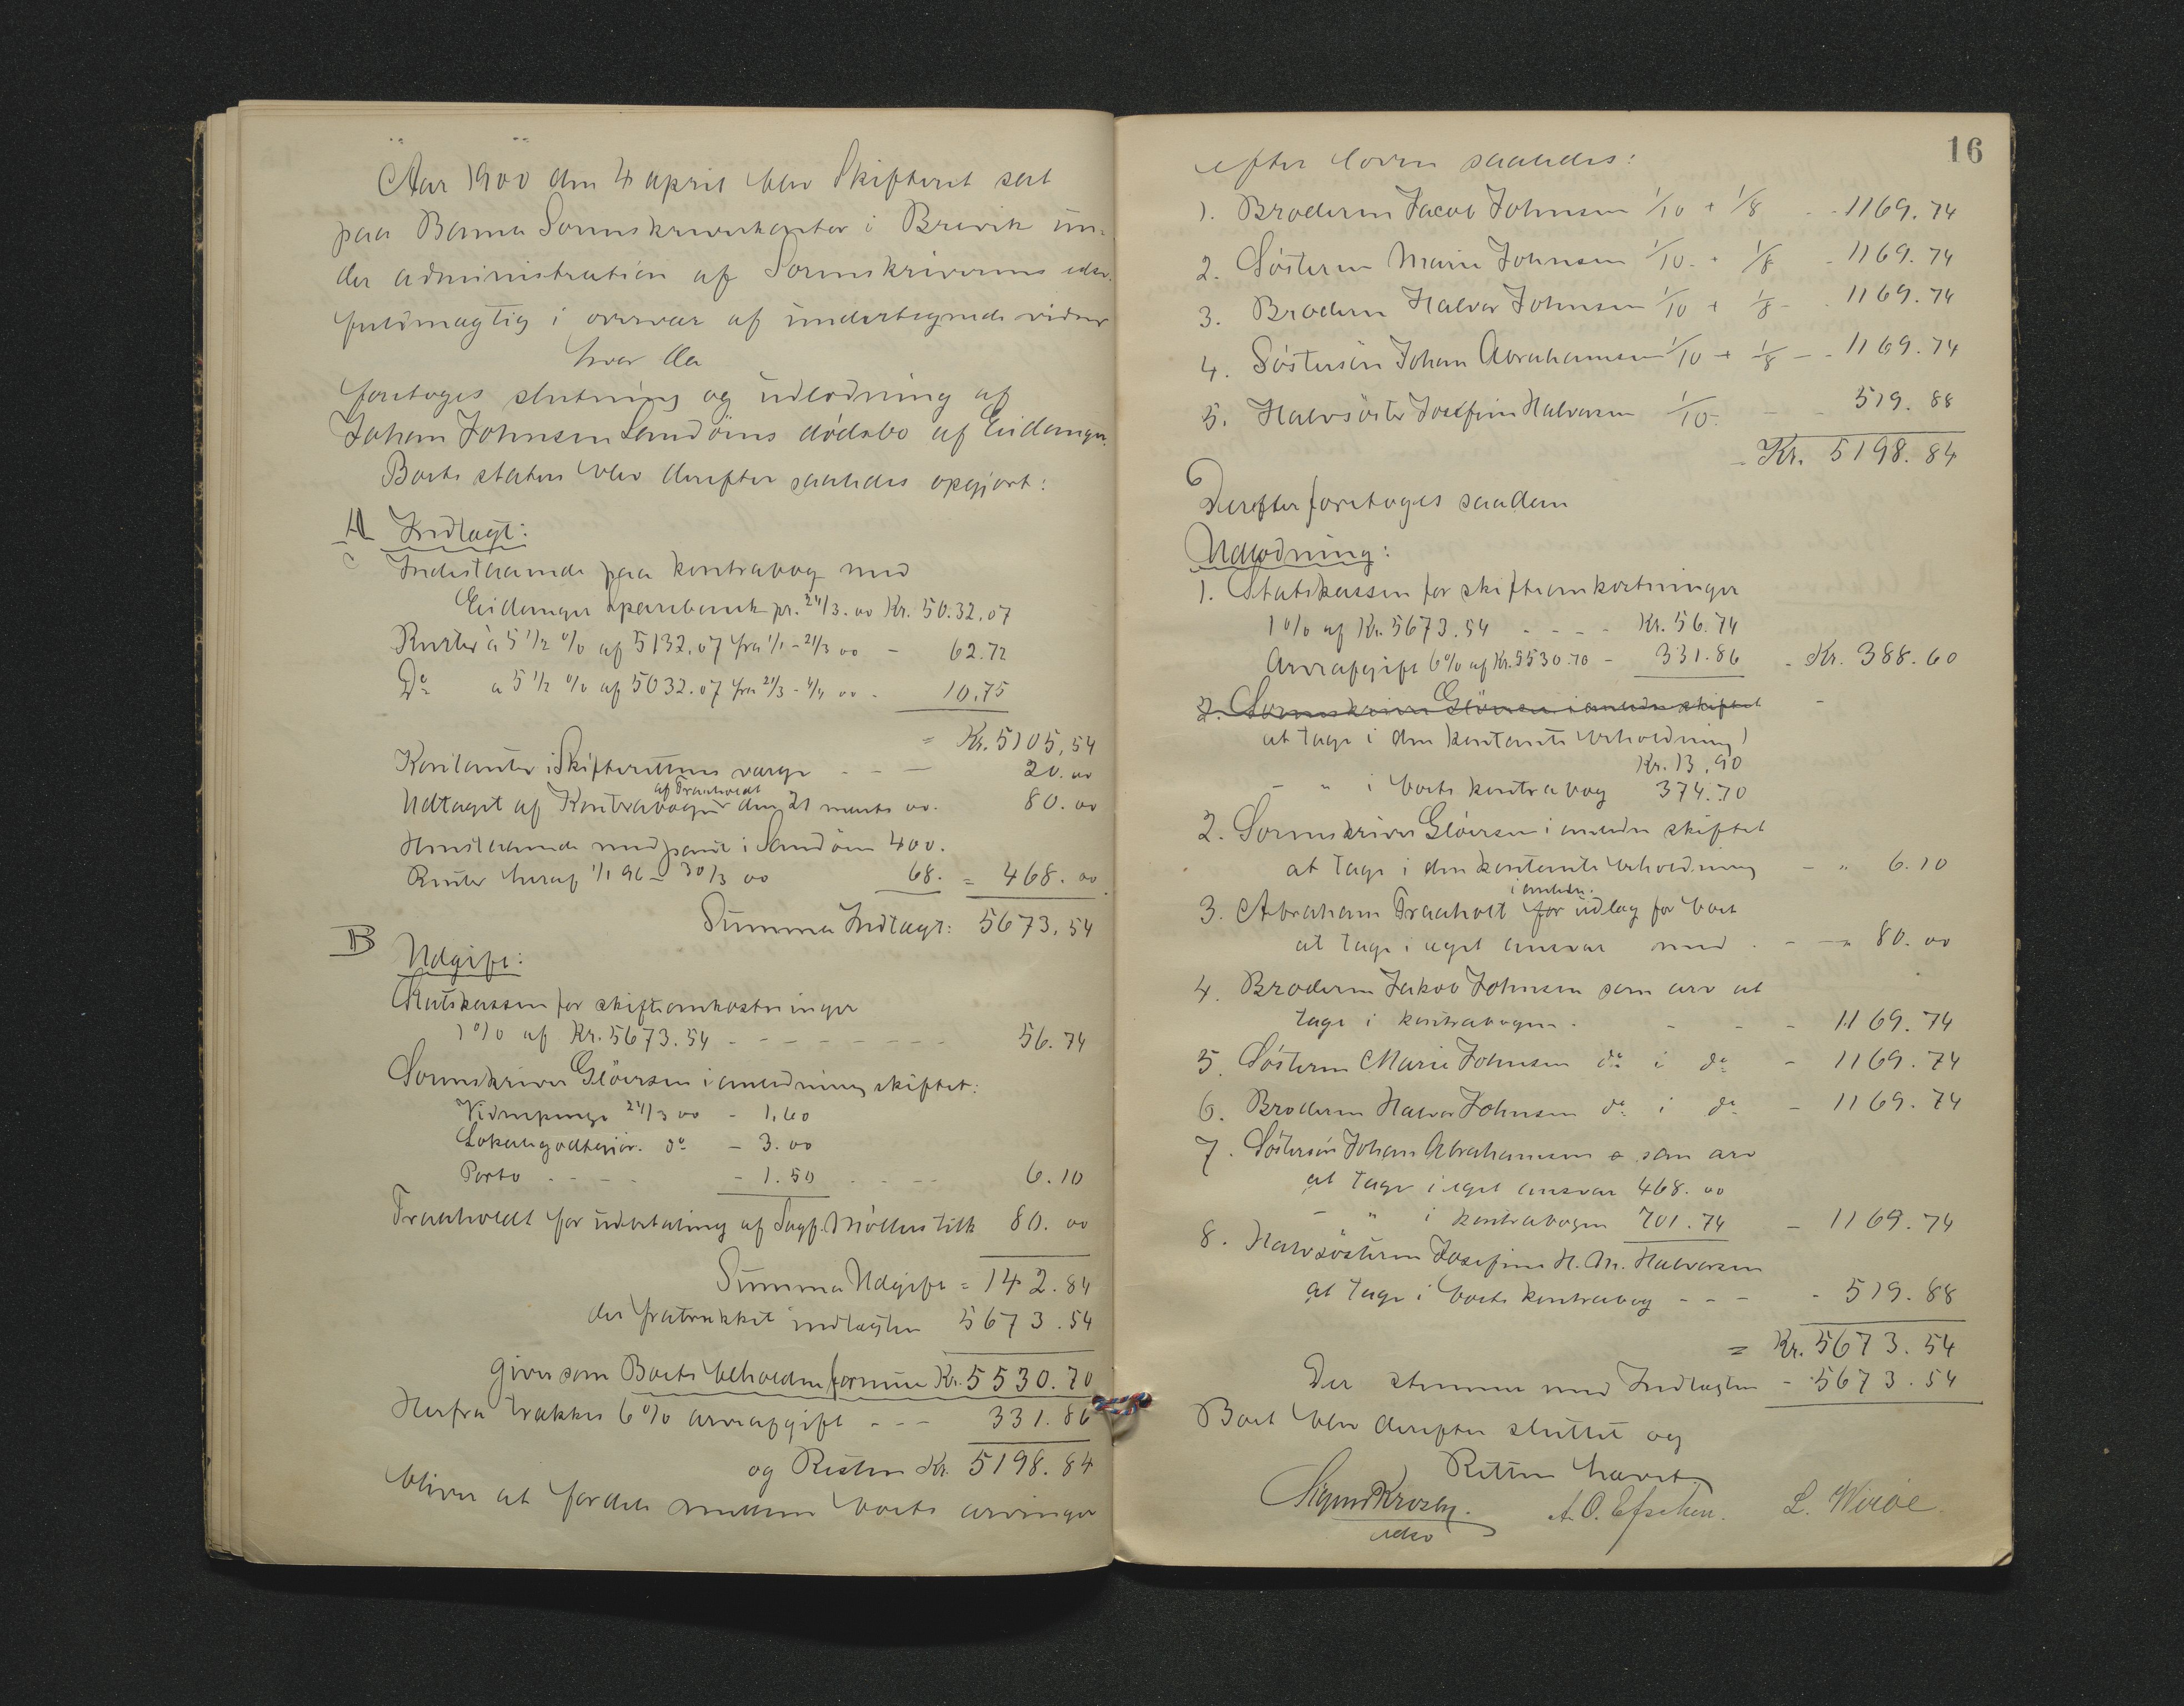 Aar 1900 den 4 april blev Skifteret sat
paa Bamle Sorenskriverkontor i Brevik un-
der administration af Sorenskriverens edsv.
fuldmægtig i overvær af undertegnede vidner
hvor da
foretoges slutning og udlodning af
Johan Johnsen Sandøens dødsbo af Eidanger.
Boets status blev derefter saaledes opgjort:
A Indtægt:
Indestaaende paa kontrabog med
Eidanger Sparebank pr. 21/3. 00 Kr. 50.32.07
Renter à 5 1/2 % af 5132.07 fra 1/1 - 21/3 00 - 62.72
Do a 5 1/2 % af 5032.07 fra 21/3 - 4/4 00 - 10.75
= Kr. 5105.54
Kontanter i Skifterettens værge - - - 20.00
Udtaget af Kontrabogen af Traaholdt den 21 marts 00. 80.00
Henstaaende med pant i Sandøen 400.
Renter heraf 1/1 96 - 30/3 00 68. = 468.00
Summa Indtægt: 5673.54
B Udgift:
Statskassen for skifteomkostninger
1 % af Kr. 5673.54 - - - - - - - - 56.74
Sorenskriver Gløersen i anledning skiftet:
Vidnepenge 21/3 00 - 1.60
Lokalegodtgjør. do - 3.00
Porto - - - - - 1.50 - - - 6.10
Traaholdt for udbetaling af Sagf. Møllers tilh 80.00
Summa Udgift = 142.84
der fratrukket indtægten 5673.54
giver som Boets beholdne formue Kr. 5530.70
Herfra trækkes 6 % arveafgift - - - 331.86
og Resten Kr. 5198.84
bliver at fordele mellem boets arvinger
16
efter loven saaledes:
1. Broderen Jacob Johnsen 1/10 + 1/8 - - 1169.74
2. Søsteren Marie Johnsen 1/10 + 1/8 - 1169.74
3. Broderen Halvor Johnsen 1/10 + 1/8 - - 1169.74
4. Søstersøn Johan Abrahamsen 1/10 + 1/8 - - 1169.74
5. Halvsøster Josefine Halvorsen 1/10 - - - 519.88
- Kr. 5198.84
Derefter foretoges saadan
Udlodning:
1. Statskassen for skifteomkostninger
1 % af Kr. 5673.54 - - - - Kr. 56.74
Arveafgift 6 % af Kr. 5530.70 - 331.86 - Kr. 388.60
2. Sorenskriver Gløersen i anledn skiftet -
at tage i den kontante beholdning
Kr. 13.90
- " i boets kontrabog 374.70
2. Sorenskriver Gløersen i anledn skiftet
at tage i den kontante beholdning - " 6.10
3. Abraham Traaholt for i anledn. udlæg for boet
at tage i eget ansvar med - - " 80.00
4. Broderen Jakob Johnsen som arv at
tage i kontrabogen - - - - 1169.74
5. Søsteren Marie Johnsen do i do - 1169.74
6. Broderen Halvor Johnsen do i do - 1169.74
7. Søstersøn Johan Abrahamsen som arv
at tage i eget ansvar 468.00
- " i kontrabogen 701.74 - 1169.74
8. Halvsøsteren Josefine H. M. Halvorsen
at tage i boets kontrabog - - - - 519.88
= Kr. 5673.54
Der stemmer med Indtægten - 5673.54
Boet blev derefter sluttet og
Retten hævet
Sigurd Krosby. A. O. L. Wiröe.
edsv